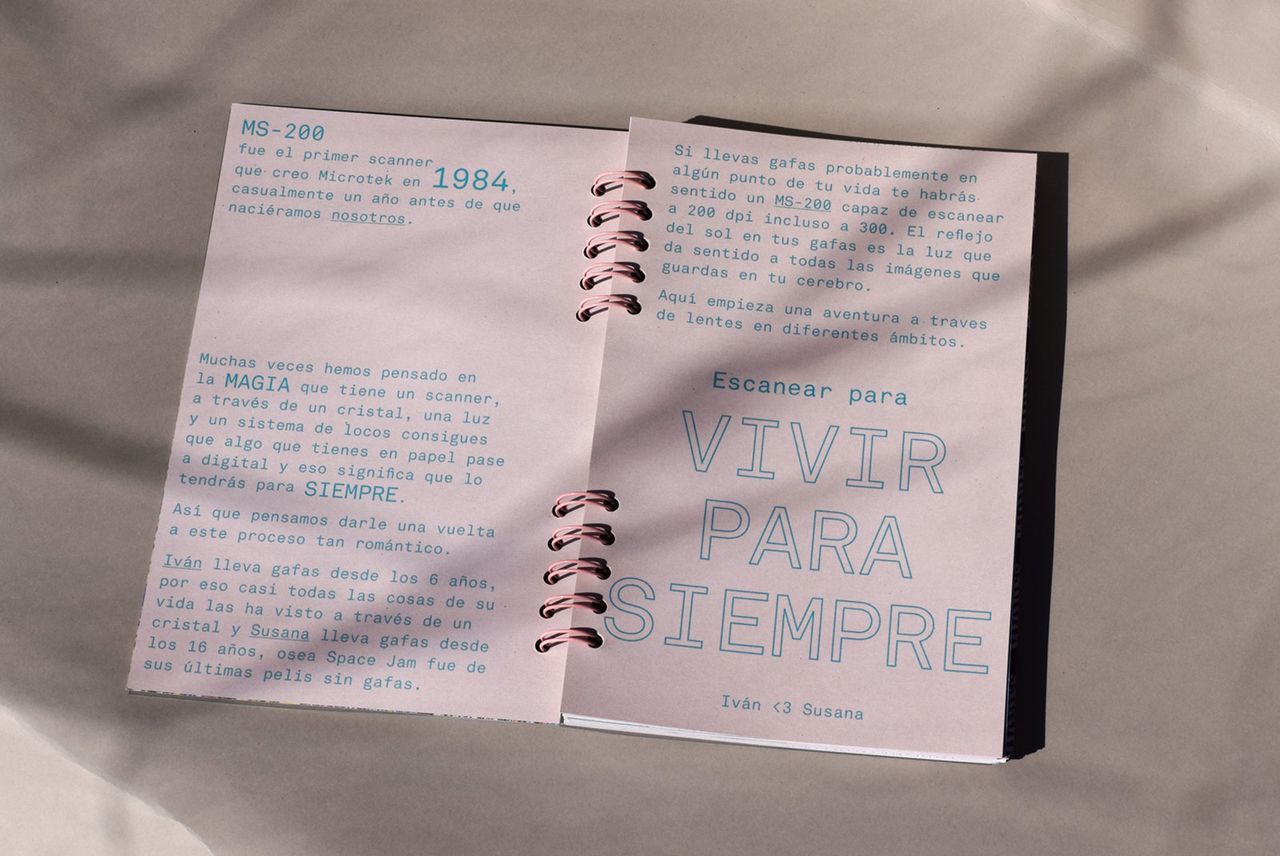 MS-200
fue el primer scanner
que creo Microtek en 1984,
casualmente un año antes de que
naciéramos nosotros.
Muchas veces hemos pensado en
la MAGIA que tiene un scanner,
a través de un cristal, una luz
y un sistema de locos consigues
que algo que tienes en papel pase
a digital y eso significa que lo
tendrás para SIEMPRE.
Así que pensamos darle una vuelta
a este proceso tan romántico.
Iván lleva gafas desde los 6 años,
por eso casi todas las cosas de su
vida las ha visto a través de un
cristal y Susana lleva gafas desde
los 16 años, osea Space Jam fue de
sus últimas pelis sin gafas.
Si llevas gafas probablemente en
algún punto de tu vida te habrás
sentido un MS-200 capaz de escanear
a 200 dpi incluso a 300. El reflejo
del sol en tus gafas es la luz que
da sentido a todas las imágenes que
guardas en tu cerebro.
Aquí empieza una aventura a traves
de lentes en diferentes ámbitos.
Escanear para
VIVIR
PARA
SIEMPRE
Iván <3 Susana